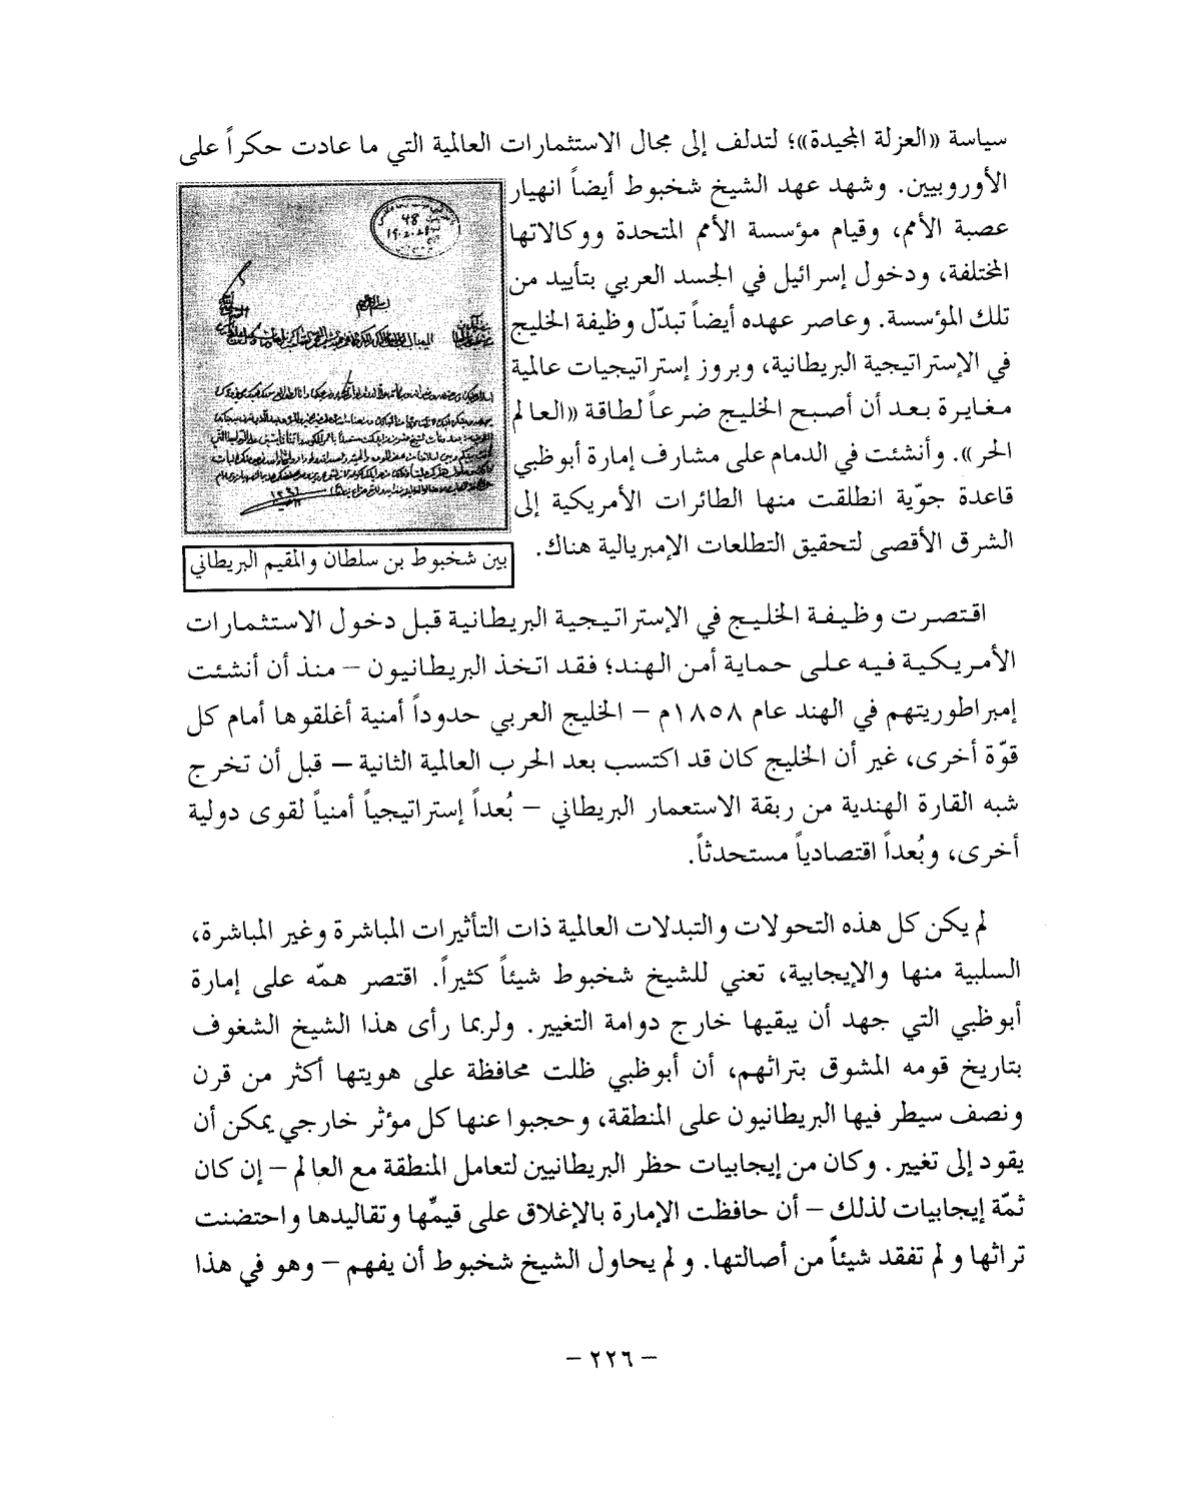 سياسة «العزلة المجيدة»؛ لتدلف إلى مجال الاستثمارات العالمية التي ما عادت حكراً على
الأوروبيين. وشهد عهد الشيخ شخبوط أيضاً انهيار
عصبة الأمم، وقيام مؤسسة الأمم المتحدة ووكالاتها
المختلفة، ودخول إسرائيل في الجسد العربي بتأييد من
تلك المؤسسة. وعاصر عهده أيضاً تبدّل وظيفة الخليج
في الإستراتيجية البريطانية، وبروز إستراتيجيات عالمية
مغايرة بعد أن أصبح الخليج ضرعاً لطاقة «العالم
الحر». وأنشئت في الدمام على مشارف إمارة أبوظبي
قاعدة جوّية انطلقت منها الطائرات الأمريكية إلى
الشرق الأقصى لتحقيق التطلعات الإمبريالية هناك.
48
بين شخبوط بن سلطان والمقيم البريطاني
اقتصرت وظيفة الخليج في الإستراتيجية البريطانية قبل دخول الاستثمارات
الأمريكية فيه على حماية أمن الهند؛ فقد اتخذ البريطانيون – منذ أن أنشئت
إمبراطوريتهم في الهند عام ١٨٥٨م – الخليج العربي حدوداً أمنية أغلقوها أمام كل
قوّة أخرى، غير أن الخليج كان قد اكتسب بعد الحرب العالمية الثانية – قبل أن تخرج
شبه القارة الهندية من ربقة الاستعمار البريطاني – بُعداً إستراتيجياً أمنياً لقوى دولية
أخرى، وبُعداً اقتصادياً مستحدثاً.
لم يكن كل هذه التحولات والتبدلات العالمية ذات التأثيرات المباشرة وغير المباشرة،
السلبية منها والإيجابية، تعني للشيخ شخبوط شيئاً كثيراً. اقتصر همّه على إمارة
أبوظبي التي جهد أن يبقيها خارج دوامة التغيير. ولربما رأى هذا الشيخ الشغوف
بتاريخ قومه المشوق بتراثهم، أن أبوظبي ظلت محافظة على هويتها أكثر من قرن
ونصف سيطر فيها البريطانيون على المنطقة، وحجبوا عنها كل مؤثر خارجي يمكن أن
يقود إلى تغيير. وكان من إيجابيات حظر البريطانيين لتعامل المنطقة مع العالم – إن كان
ثمّة إيجابيات لذلك – أن حافظت الإمارة بالإغلاق على قيمِّها وتقاليدها واحتضنت
تراثها ولم تفقد شيئاً من أصالتها. ولم يحاول الشيخ شخبوط أن يفهم – وهو في هذا
– ٢٢٦ –